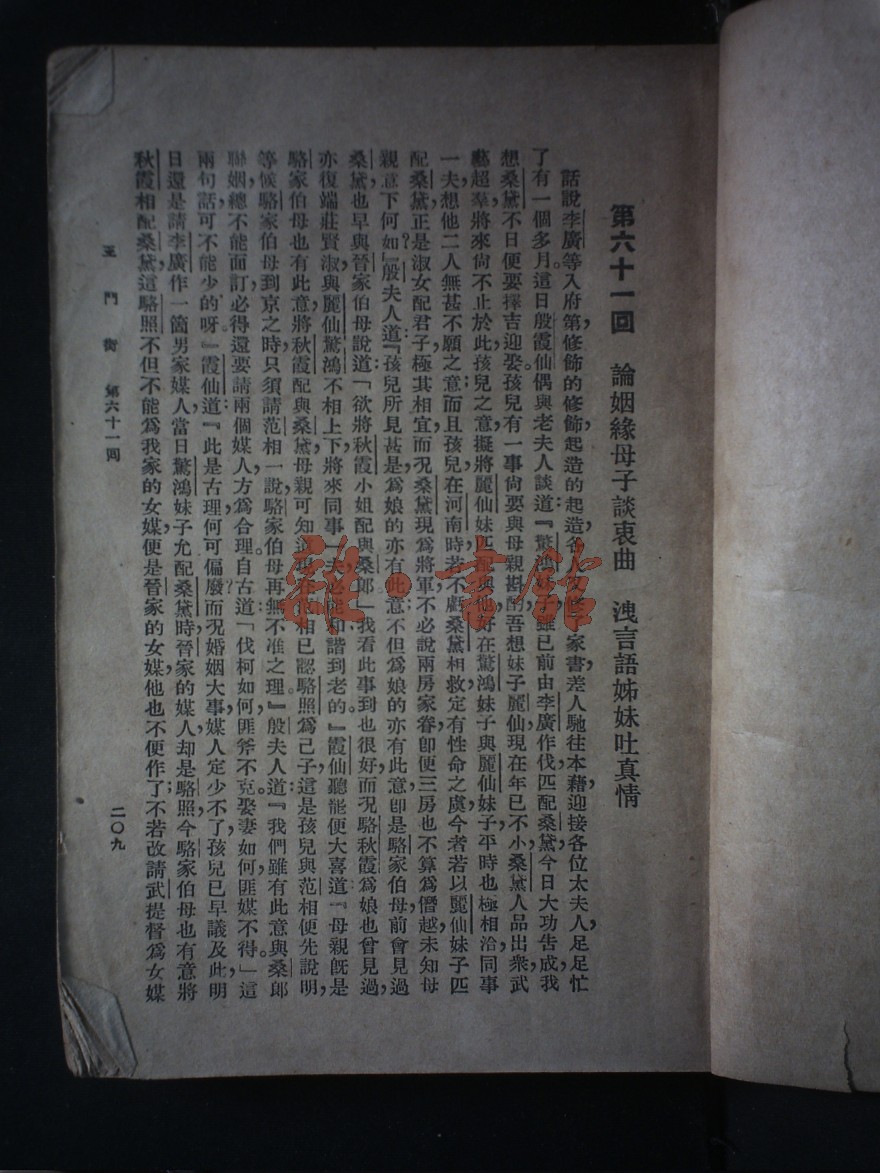 第六十一回　論姻緣母子談衷曲　洩言語姊妹吐真情
話說李廣等入府第，修飾的修飾，起造的起造，各人又修了家書，差人馳往本藉，迎接各位太夫人，足足忙
了有一個多月。這日殷霞仙偶與老夫人談道：『驚鴻妹子雖已前由李廣作伐匹配桑黛，今日大功告成，我
想桑黛不日便要擇吉迎娶。孩兒有一事，尙要與母親斟酌，吾想妹子麗仙現在年已不小，桑黛人品出衆，武
藝超羣，將來尙不止於此，孩兒之意，擬將麗仙妹匹配與他，好在驚鴻妹子與麗仙妹子平時也極相洽，同事
一夫，想他二人無甚不願之意；而且孩兒在河南時，若不虧桑黛相救，定有性命之虞，今者若以麗仙妹子匹
配桑黛，正是淑女配君子，極其相宜，而况桑黛現爲將軍，不必說兩房家眷，卽便三房也不算爲僭越，未知母
親意下何如？』殷夫人道：『孩兒所見甚是，爲娘的亦有此意，不但爲娘的亦有此意，卽是駱家伯母前會見過
桑黛，也早與晉家伯母說道：「欲將秋霞小姐配與桑郎」我看此事到也很好，而况駱秋霞爲娘也曾見過，
亦復端莊賢淑，與麗仙驚鴻不相上下，將來同事一夫，必能和諧到老的。』霞仙聽罷，便大喜道：『母親旣是
駱家伯母也有此意，將秋霞配與桑黛，母親可知道現在范相已認駱照爲己子，這是孩兒與范相便先說明，
等候駱家伯母到京之時，只須請范相一說，駱家伯母再無不准之理。』殷夫人道：『我們雖有此意，與桑郎
聯姻，總不能面訂，必得還要請兩個媒人，方爲合理。自古道：「伐柯如何？匪斧不克。娶妻如何？匪媒不得。」這
兩句話，可不能少的呀。』霞仙道：『此是古理，何可偏廢，而况婚姻大事，媒人定少不了，孩兒已早議及此，明
日還是請李廣作一箇男家媒人，當日驚鴻妹子允配桑黛時，晉家的媒人却是駱照；今駱家伯母也有意將
秋霞相配桑黛，這駱照不但不能爲我家的女媒，便是晉家的女媒，他也不便作了，不若改請武提督爲女媒
玉門街　第六十一回
二〇九
雜·書館